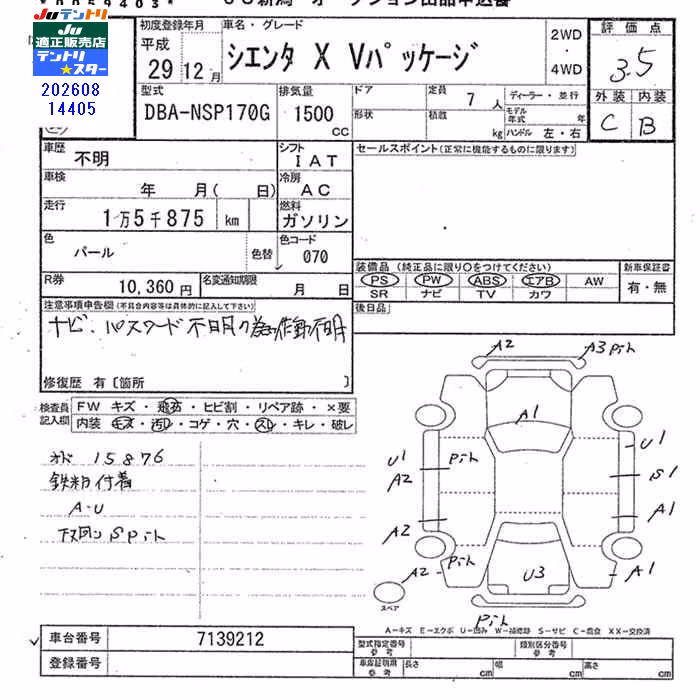 *00059403* JU新潟 オークション出品申込書
Juテントリ
JU
適正販売店
テントリ
★スター
202608
14405
初度登録年月
平成
29 12 月
車名・グレード
シエンタ X Vパッケージ
2WD
・
4WD
評価点
3.5
外装 内装
C B
型式
DBA-NSP170G
排気量
1500
CC
ドア
形状
定員 7 人
積載 kg
ディーラー・並行
モデル年式 年
ハンドル 左・右
車歴
不明
シフト
IAT
セールスポイント(正常に機能するものに限ります)
車検
年 月( 日)
冷房
AC
走行
1万5千875 km
燃料
ガソリン
色
パール
色替
色コード
070
装備品 (純正品に限り○をつけてください)
PS PW ABS エアB AW
SR ナビ TV カワ
新車保証書
有・無
R券
10,360円
名変通知期限
月 日
後日品
注意事項申告欄(不具合内容等は具体的に記入して下さい)
ナビ、パスワード不明の為動作不明
修復歴 有〔箇所 〕
検査員
記入欄
FW キズ・飛石・ヒビ割・リペア跡・×要
内装 キズ・汚レ・コゲ・穴・スレ・キレ・破レ
オド 15876
鉄粉付着
A-U
下回り S pit
A2 A3 pit
A1
U1
A2
pit
U1
S1
A2
A1
A2
pit
U3
A1
pit
スペア
A-キズ E-エクボ U-凹み W-補修跡 S-サビ C-腐食 XX-交換済
車台番号
7139212
登録番号
型式指定番号
参考
類別区分番号
参考
車庫証明用
参考
長さ cm 幅 cm 高さ cm